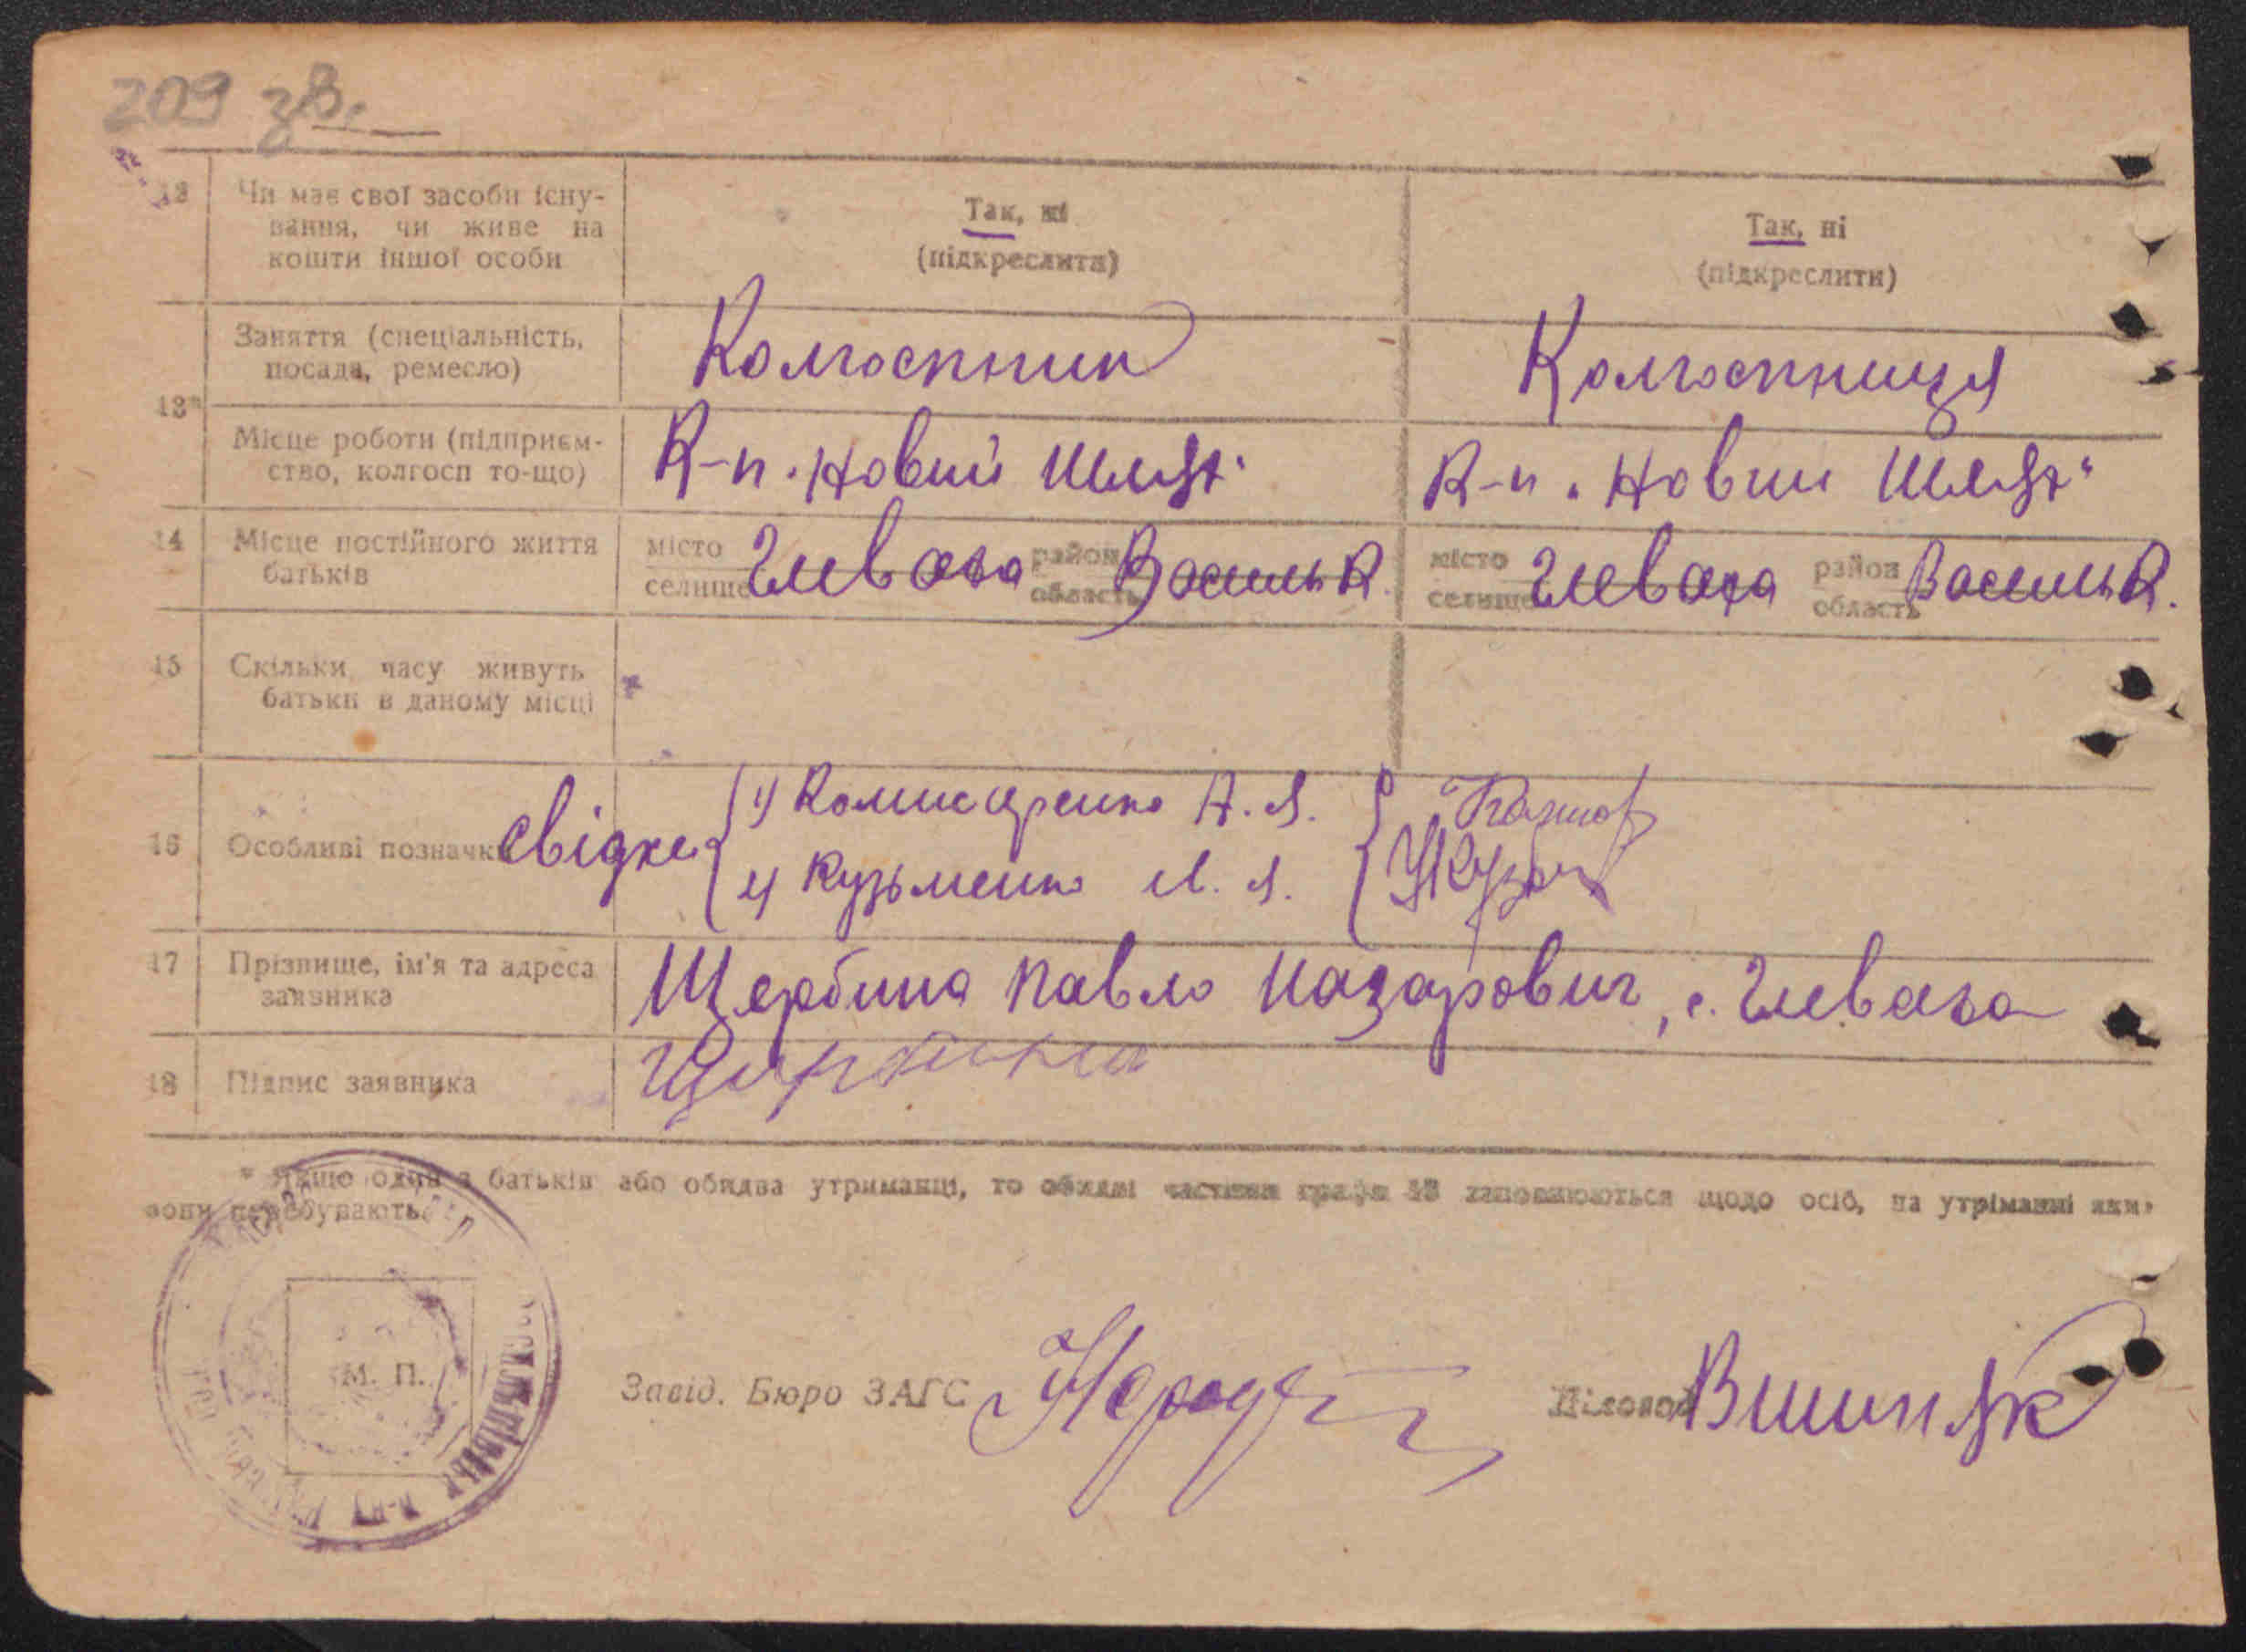 209 зв.
Чи має свої засоби існу-
вання, чи живе на
кошти іншої особи
Так, ні
(підкреслити)
Так, ні
(підкреслити)
13*
Заняття (спеціальність,
посада, ремесло)
Колгоспник
Колгоспниця
Місце роботи (підприєм-
ство, колгосп то-що)
К-п "Новий Шлях"
К-п "Новий Шлях"
14
Місце постійного життя
батьків
місто
селище
Глеваха
район
область
Васильк.
місто
селище
Глеваха
район
область
Васильк.
15
Скільки часу живуть
батьки в даному місці
16
Особливі позначки
Свідки
1) Комисаренко А. Я.
2) Кузьменко М. Я.
17
Прізвище, ім'я та адреса
заявника
Щербина Павло Назарович, с. Глеваха
18
Підпис заявника
* Якщо один з батьків або обидва утриманці, то обидві частини графи 13 заповнюються щодо осіб, на утріманні яких
вони перебувають.
М. П.
Завід. Бюро ЗАГС
Діловод